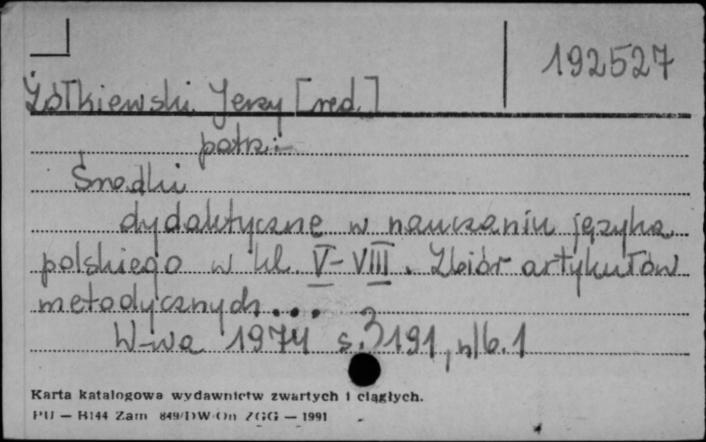 192527
Żółkiewski Jerzy [red.]
patrz:
Środki
dydaktyczne w nauczaniu języka
polskiego w kl. V-VIII. Zbiór artykułów
metodycznych...
W-wa 1974 s. 3191, nlb. 1
Karta katalogowa wydawnictw zwartych i ciągłych.
PU — H144 Zam 849/DW/On ZGG — 1991